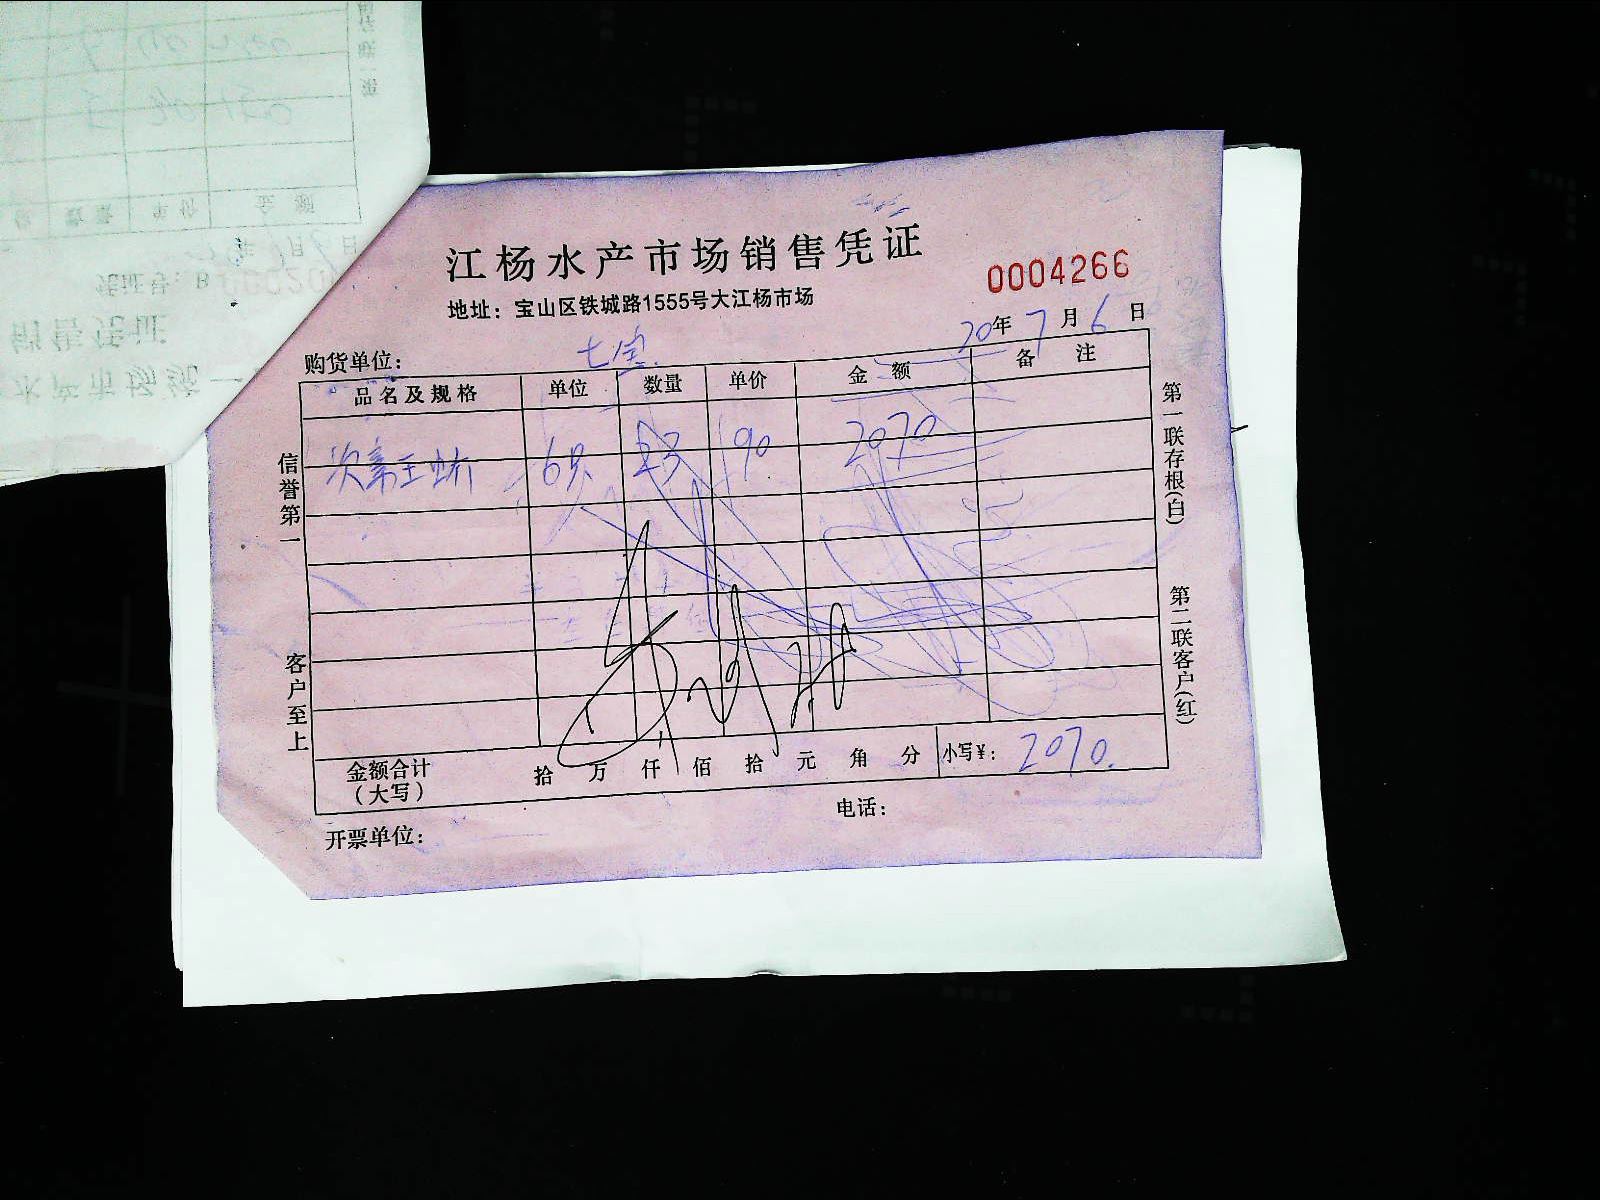 江杨水产市场销售凭证
0004266
地址：宝山区铁城路1555号大江杨市场
20年7月6日
购货单位：七宝
品名及规格 单位 数量 单价 金额 备注
次帝王蚧 6只 23 90 2070
信誉第一
客户至上
第一联存根(白)
第二联客户(红)
金额合计
（大写） 拾 万 仟 佰 拾 元 角 分 小写¥：2070.
开票单位： 电话：
数量 单价 金额
年 月 日
凭证号：B
销售凭证
水产市场统一